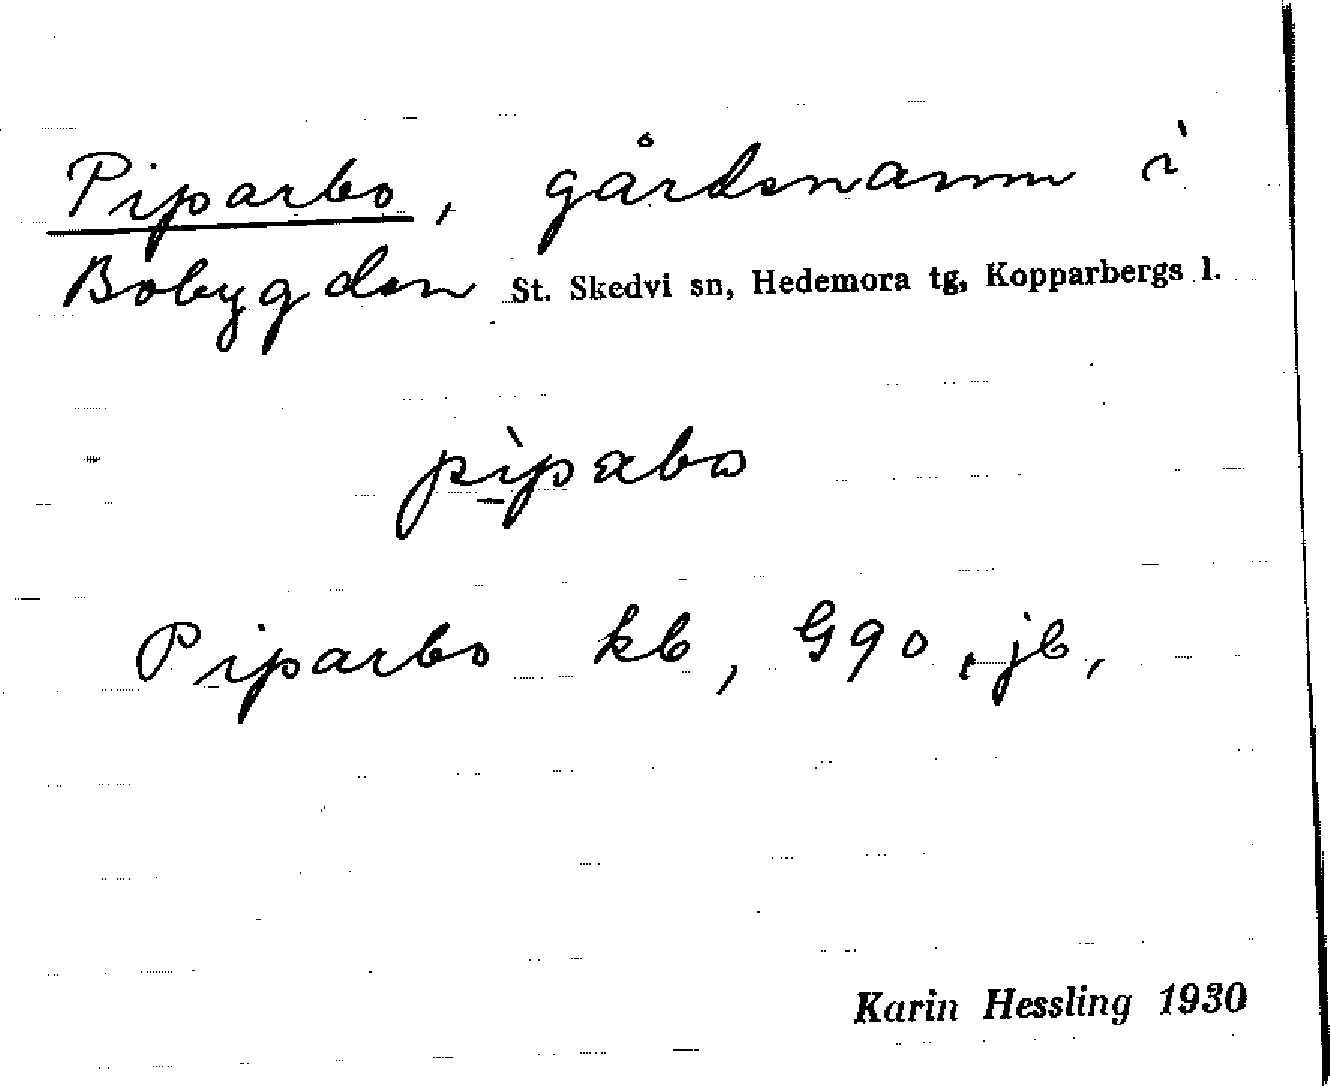 Piparbo, gårdsnamn i
Bobygden St. Skedvi sn, Hedemora tg, Kopparbergs l.
pìpabo
Piparbo kb, G90, jb,
Karin Hessling 1930